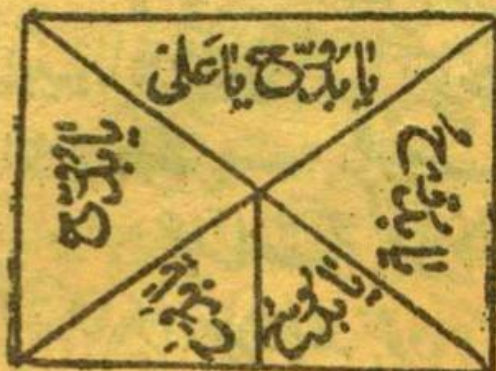 یا بدوح یا علی
یا بدوح
یا بدوح
یا بدوح
یا بدوح